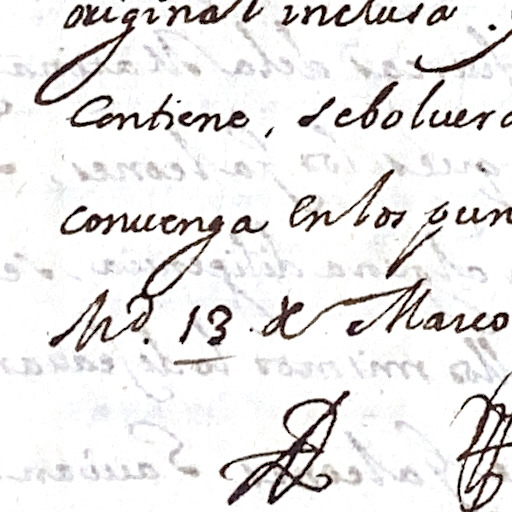 original inclusa.
Contiene, seboluera
convenga en los pun
Md. 13 de Março